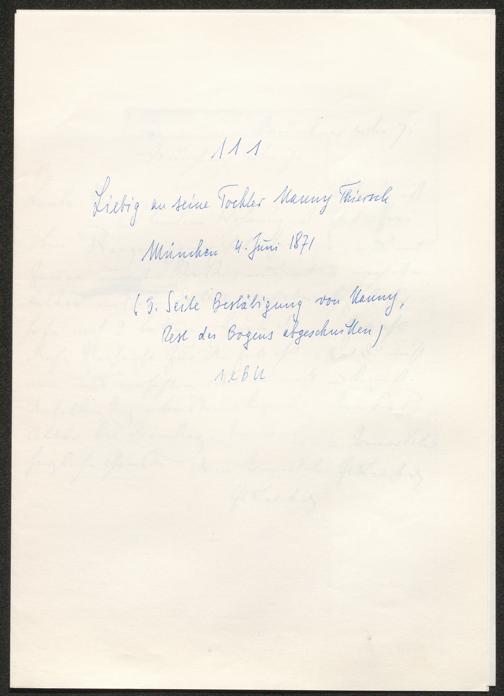 111
Liebig an seine Tochter Nanny Thiersch
München 4. Juni 1871
(3. Seite Bestätigung von Nanny,
Rest des Bogens abgeschnitten)